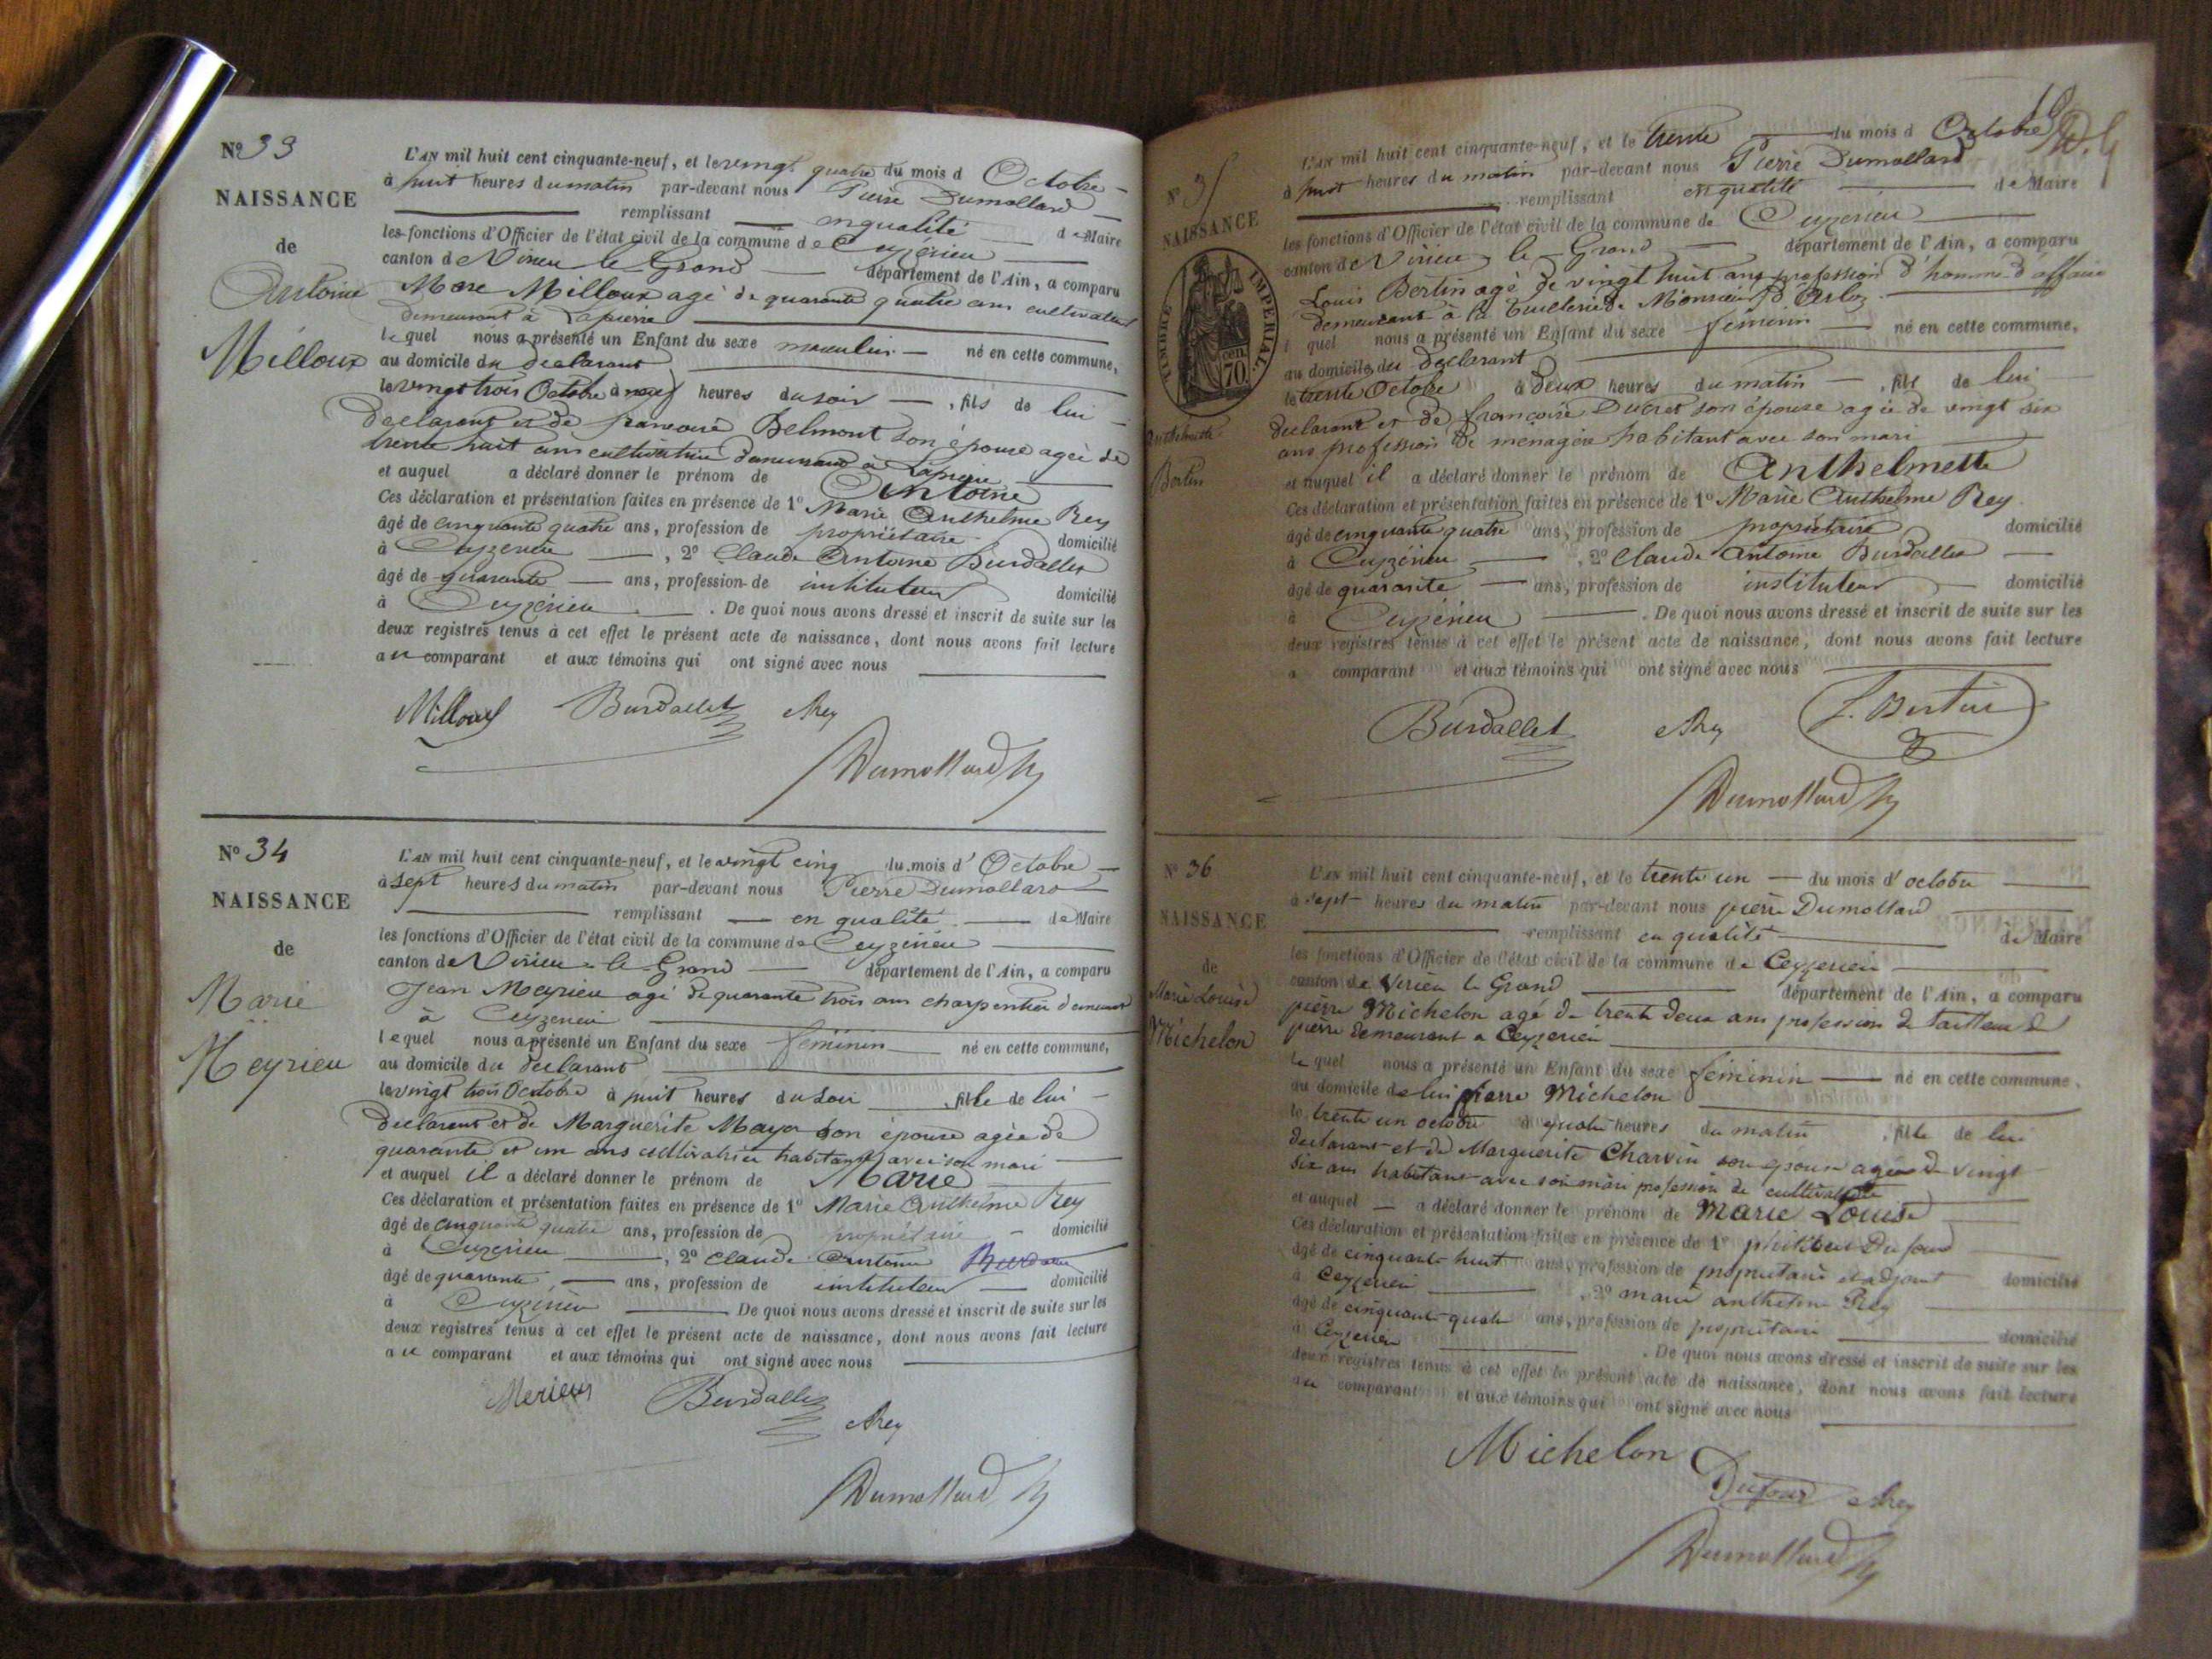 Nº 33
NAISSANCE
de
Antoine
Milloux
L'AN mil huit cent cinquante-neuf, et le vingt quatre du mois d Octobre
à huit heures du matin par-devant nous Pierre Dumollard
remplissant en qualité de Maire
les fonctions d'Officier de l'état civil de la commune de Ceyzérieu
canton de Virieu le Grand département de l'Ain, a comparu
Marc Milloux agé de quarante quatre ans cultivateur
demeurant à Lapierre
lequel nous a présenté un Enfant du sexe masculin né en cette commune,
au domicile du declarant
le vingt trois Octobre à neuf heures du soir, fils de lui
declarant et de francoise Belmont son épouse agée de
trente huit ans cultivatrice demeurant à Lapierre
et auquel a déclaré donner le prénom de Antoine
Ces déclaration et présentation faites en présence de 1º Marie Anthelme Rey
âgé de cinquante quatre ans, profession de propriétaire domicilié
à Ceyzerieu, 2º Claude Antoine Burdallet
âgé de quarante ans, profession de instituteur domicilié
à Ceyzérieu. De quoi nous avons dressé et inscrit de suite sur les
deux registres tenus à cet effet le présent acte de naissance, dont nous avons fait lecture
au comparant et aux témoins qui ont signé avec nous
Milloux Burdallet Rey
Dumollard
Nº 34
NAISSANCE
de
Marie
Meyrieu
L'AN mil huit cent cinquante-neuf, et le vingt cinq du mois d'Octobre
à sept heures du matin par-devant nous Pierre Dumollard
remplissant en qualité de Maire
les fonctions d'Officier de l'état civil de la commune de Ceyzérieu
canton de Virieu le Grand département de l'Ain, a comparu
Jean Meyrieu agé de quarante trois ans charpentier demeurant
à Ceyzerieu
lequel nous a présenté un Enfant du sexe féminin né en cette commune,
au domicile du declarant
le vingt trois Octobre à huit heures du soir, fille de lui
declarant et de Marguerite Maya son épouse agée de
quarante et un ans cultivatrice habitant avec son mari
et auquel il a déclaré donner le prénom de Marie
Ces déclaration et présentation faites en présence de 1º Marie Anthelme Rey
âgé de cinquante quatre ans, profession de propriétaire domicilié
à Ceyzerieu, 2º Claude Antoine Burdallet
âgé de quarante ans, profession de instituteur domicilié
à Ceyzérieu De quoi nous avons dressé et inscrit de suite sur les
deux registres tenus à cet effet le présent acte de naissance, dont nous avons fait lecture
au comparant et aux témoins qui ont signé avec nous
Merieux Burdallet
Rey
Dumollard
Nº 35
NAISSANCE
TIMBRE IMPERIAL
70 cen.
Anthelmette
Bertin
L'AN mil huit cent cinquante-neuf, et le trente du mois d Octobre
à huit heures du matin par-devant nous Pierre Dumollard
remplissant en qualité de Maire
les fonctions d'Officier de l'état civil de la commune de Ceyzerieu
canton de Virieu le Grand département de l'Ain, a comparu
Louis Bertin agé de vingt huit ans profession d'homme d'affaire
demeurant à la tuillerie de Monsieur d'Arloz
l quel nous a présenté un Enfant du sexe féminin né en cette commune,
au domicile du declarant
le trente Octobre à deux heures du matin, fils de lui
declarant et de françoise Ducret son épouse agée de vingt six
ans profession de menagère habitant avec son mari
et auquel il a déclaré donner le prénom de Anthelmette
Ces déclaration et présentation faites en présence de 1º Marie Anthelme Rey
âgé de cinquante quatre ans, profession de propriétaire domicilié
à Ceyzérieu, 2º Claude Antoine Burdallet
âgé de quarante ans, profession de instituteur domicilié
à Ceyzérieu. De quoi nous avons dressé et inscrit de suite sur les
deux registres tenus à cet effet le présent acte de naissance, dont nous avons fait lecture
a comparant et aux témoins qui ont signé avec nous
Burdallet Rey L. Bertin
Dumollard
Nº 36
NAISSANCE
de
Marie Louise
Michelon
L'AN mil huit cent cinquante-neuf, et le trente un du mois d'octobre
à sept heures du matin par-devant nous pierre Dumollard
remplissant en qualité de Maire
les fonctions d'Officier de l'état civil de la commune de Ceyzerieu
canton de Virieu le Grand département de l'Ain, a comparu
pierre Michelon agé de trente deux ans profession de tailleur de
pierre demeurant a Ceyzerieu
le quel nous a présenté un Enfant du sexe féminin né en cette commune,
au domicile de lui pierre Michelon
le trente un octobre à quatre heures du matin, fille de lui
declarant et de Marguerite Charvin son epouse agée de vingt
six ans habitant avec son mari profession de cultivatrice
et auquel a déclaré donner le prénom de Marie Louise
Ces déclaration et présentation faites en présence de 1º Dufour
âgé de cinquante huit ans, profession de propriétaire et adjoint domicilié
à Ceyzerieu, 2º marie anthelme Rey
âgé de cinquante quatre ans, profession de propriétaire domicilié
à Ceyzerieu. De quoi nous avons dressé et inscrit de suite sur les
deux registres tenus à cet effet le présent acte de naissance, dont nous avons fait lecture
au comparant et aux témoins qui ont signé avec nous
Michelon
Dufour Rey
Dumollard